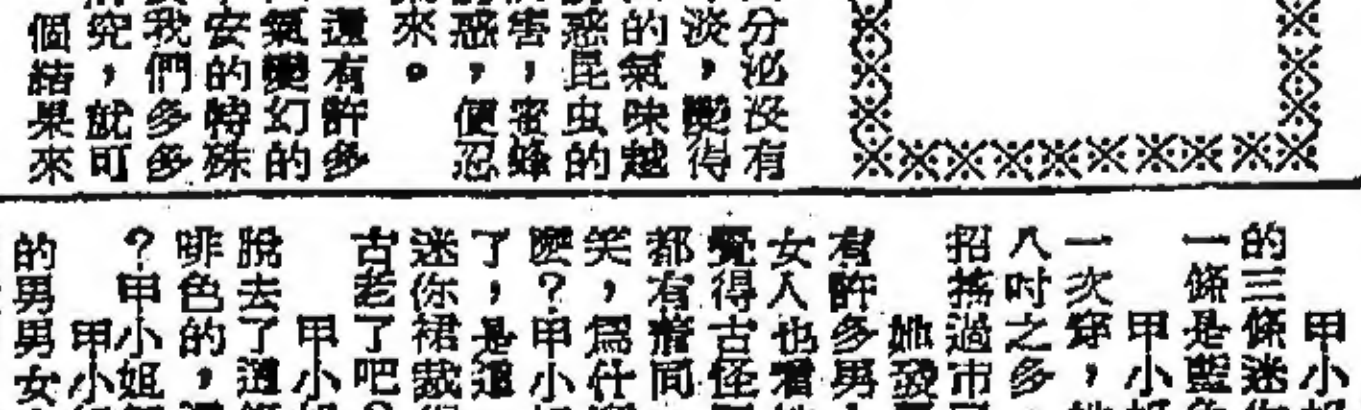 分泌沒有
淡，變得
的氣味越
惑昆虫的
害，蜜蜂
惑，便忍
來。
還有許多
氣變幻的
安的特殊
我們多多
究，就可
個結果來
甲小
的三條迷
一條是藍
甲小
一次穿，
八吋之多
招搖過市
她發
有許多男
女人也看
覺得古怪
都有着同
笑，爲什
麼？甲小
了，是這
迷你裙裁
古老了吧
甲小
脫去了迷
啡色的，
？甲小姐
甲小
的男男女